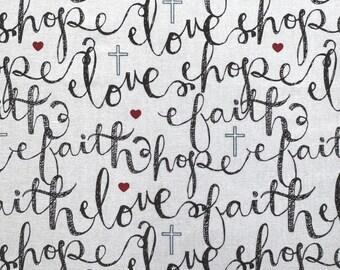 hope love hope
love hope
faith
faith hope faith
faith love faith
hope love hope